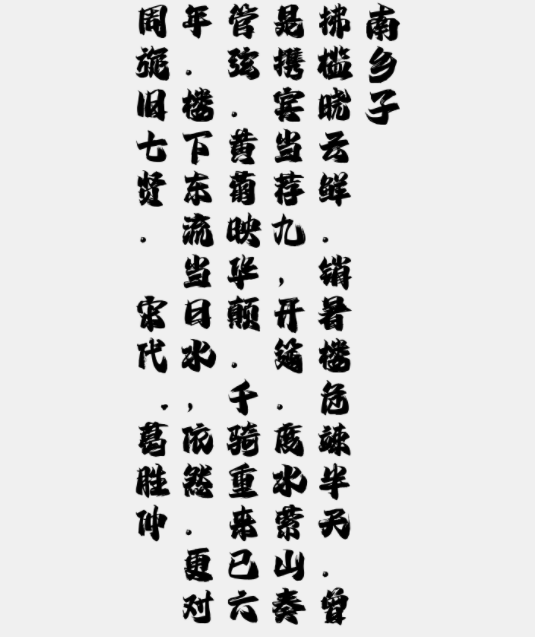 南乡子
拂槛晓云鲜．销暑楼危竦半天．曾
是携宾当荐九，开筵．度水萦山奏
管弦．黄菊映华颠．千骑重来已六
年．楼下东流当日水，依然．更对
周旋旧七贤． 宋代．葛胜仲